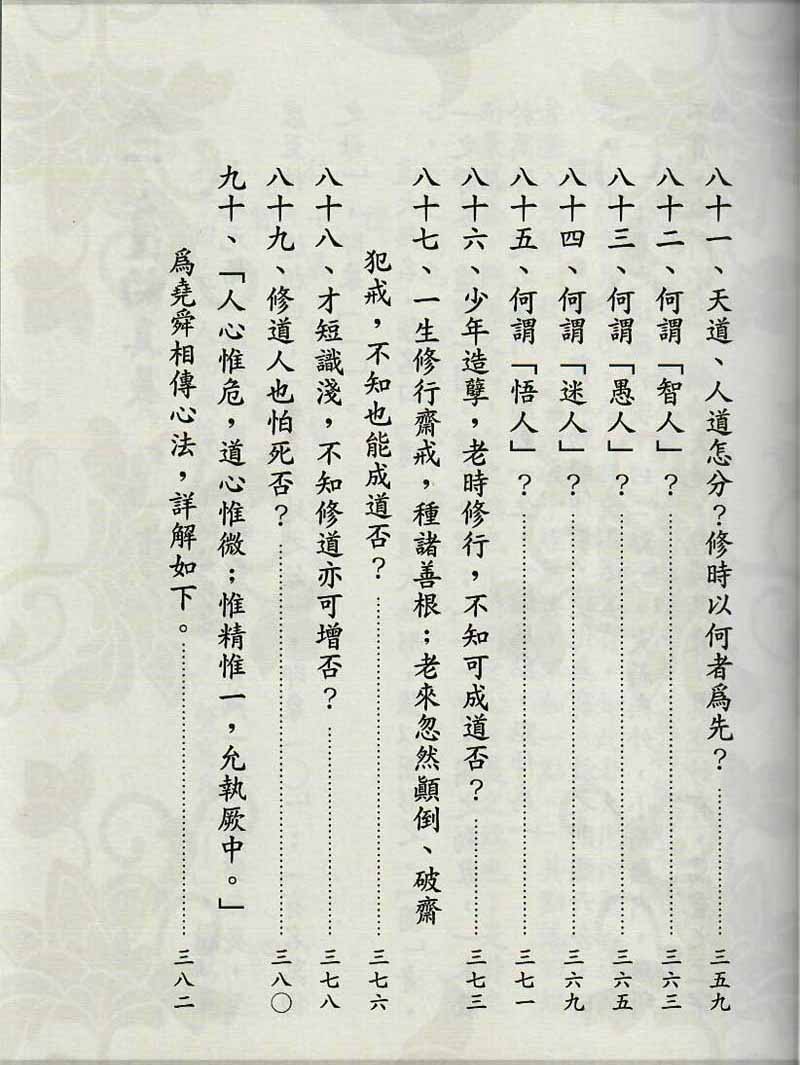 八十一、天道、人道怎分？修時以何者爲先？……三五九
八十二、何謂「智人」？……三六三
八十三、何謂「愚人」？……三六五
八十四、何謂「迷人」？……三六九
八十五、何謂「悟人」？……三七一
八十六、少年造孽，老時修行，不知可成道否？……三七三
八十七、一生修行齋戒，種諸善根；老來忽然顚倒、破齋
犯戒，不知也能成道否？……三七六
八十八、才短識淺，不知修道亦可增否？……三七八
八十九、修道人也怕死否？……三八〇
九十、「人心惟危，道心惟微；惟精惟一，允執厥中。」
爲堯舜相傳心法，詳解如下。……三八二